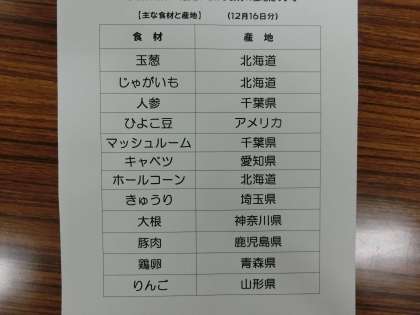 【主な食材と産地】 (12月16日分)
食材 産地
玉葱 北海道
じゃがいも 北海道
人参 千葉県
ひよこ豆 アメリカ
マッシュルーム 千葉県
キャベツ 愛知県
ホールコーン 北海道
きゅうり 埼玉県
大根 神奈川県
豚肉 鹿児島県
鶏卵 青森県
りんご 山形県